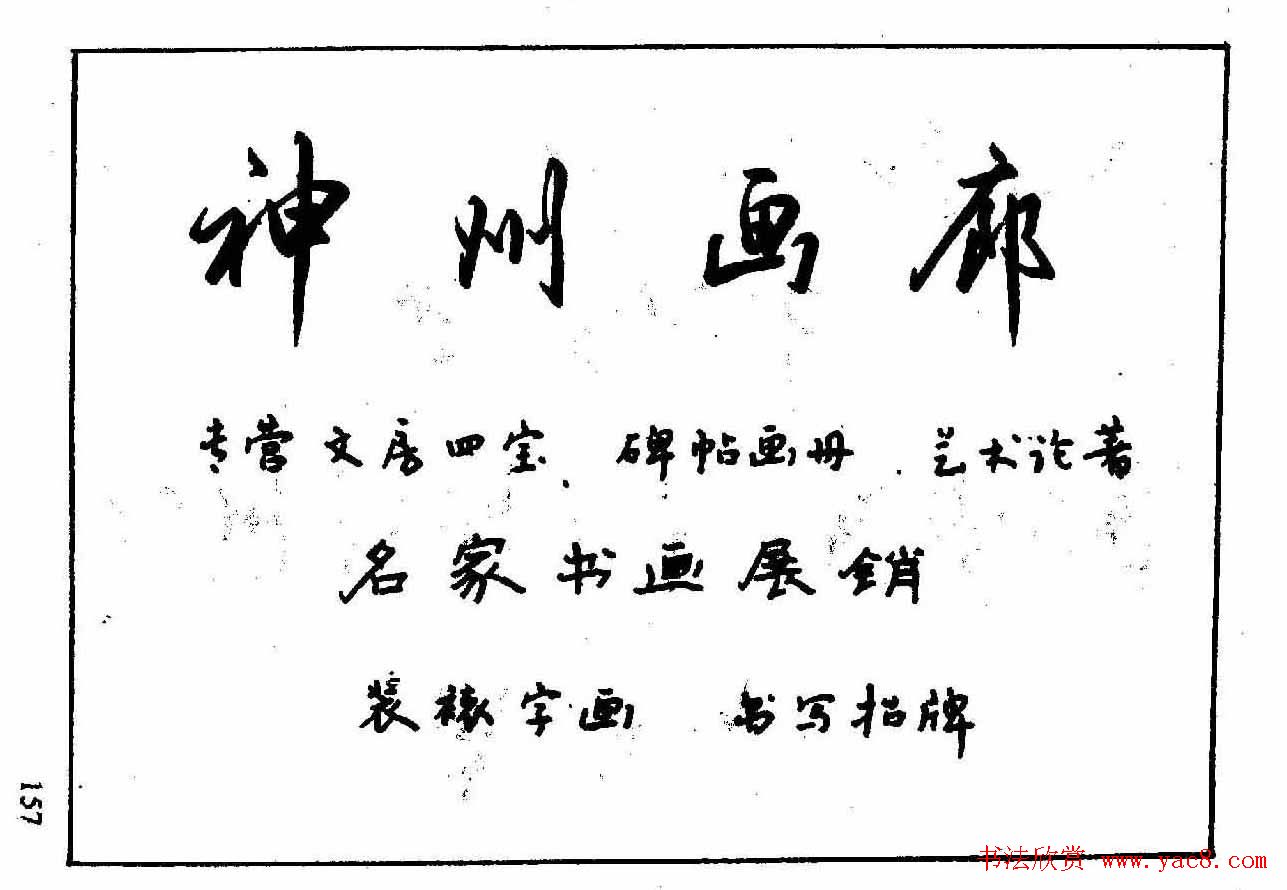 神州画廊
专营文房四宝、碑帖画册、艺术论著
名家书画展销
装裱字画 书写招牌
157
书法欣赏 www.yac8.com